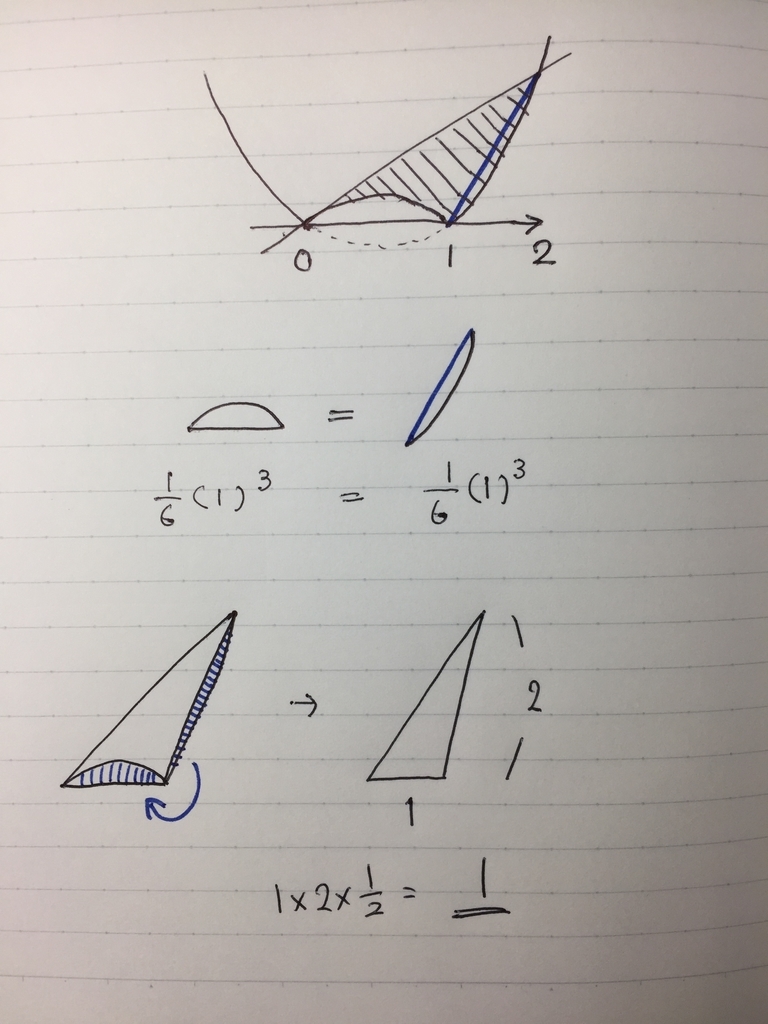 0 1 2
=
1/6 (1)^3 = 1/6 (1)^3
→ 2
1
1×2×1/2 = 1